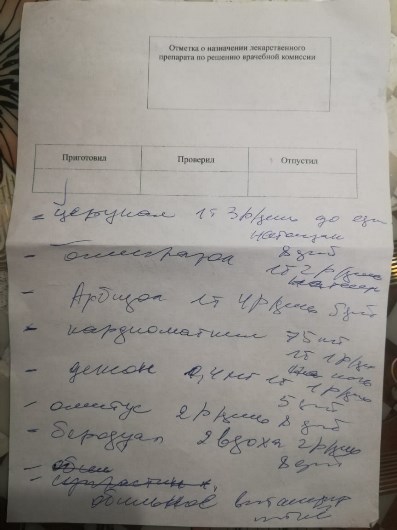 Отметка о назначении лекарственного
препарата по решению врачебной комиссии
Приготовил Проверил Отпустил
- церукал 1т 3р/день до еды
- 8 дней
1т 2р/день
- Арбидол 1т 4р/день 5 дней
- кардиомагнил 75 мг
1т 1р/д
- 0,4 мг 1т 1р/день на ночь
5 дней
- 2р/день 8 дней
- беродуал 2 вдоха 2р/день
8 дней
- обильное
питьё